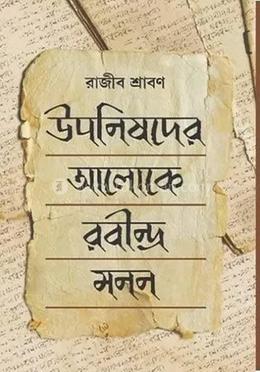 রাজীব শ্রাবণ
উপনিষদের
আলোকে
রবীন্দ্র
মনন